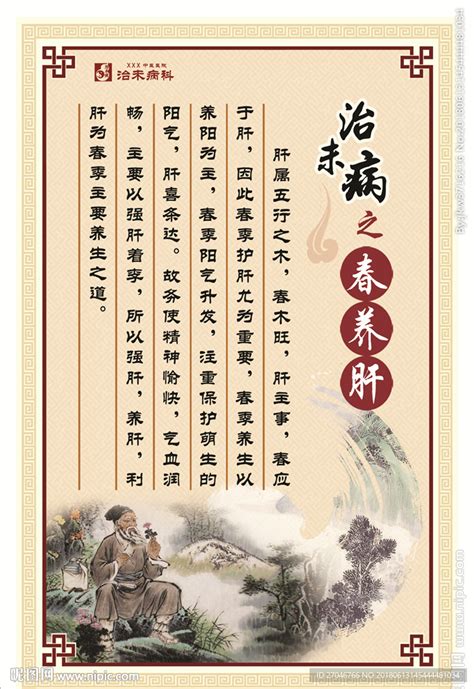 XXX中医医院
治未病科
治未病之春养肝
肝属五行之木，春木旺，肝主事，春应
于肝，因此春季护肝尤为重要，春季养生以
养阳为主，春季阳气升发，注重保护萌生的
阳气，肝喜条达。故务使精神愉快，气血润
畅，主要以强肝着李，所以强肝，养肝，利
肝为春季主要养生之道。
昵图网 www.nipic.com
ID:27046766 NO:20180613145444481034